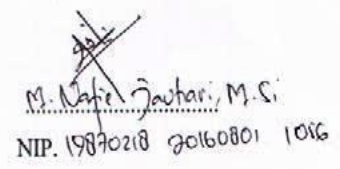 M. Nafie Jauhari, M.Si
NIP. 19870218 20160801 1056